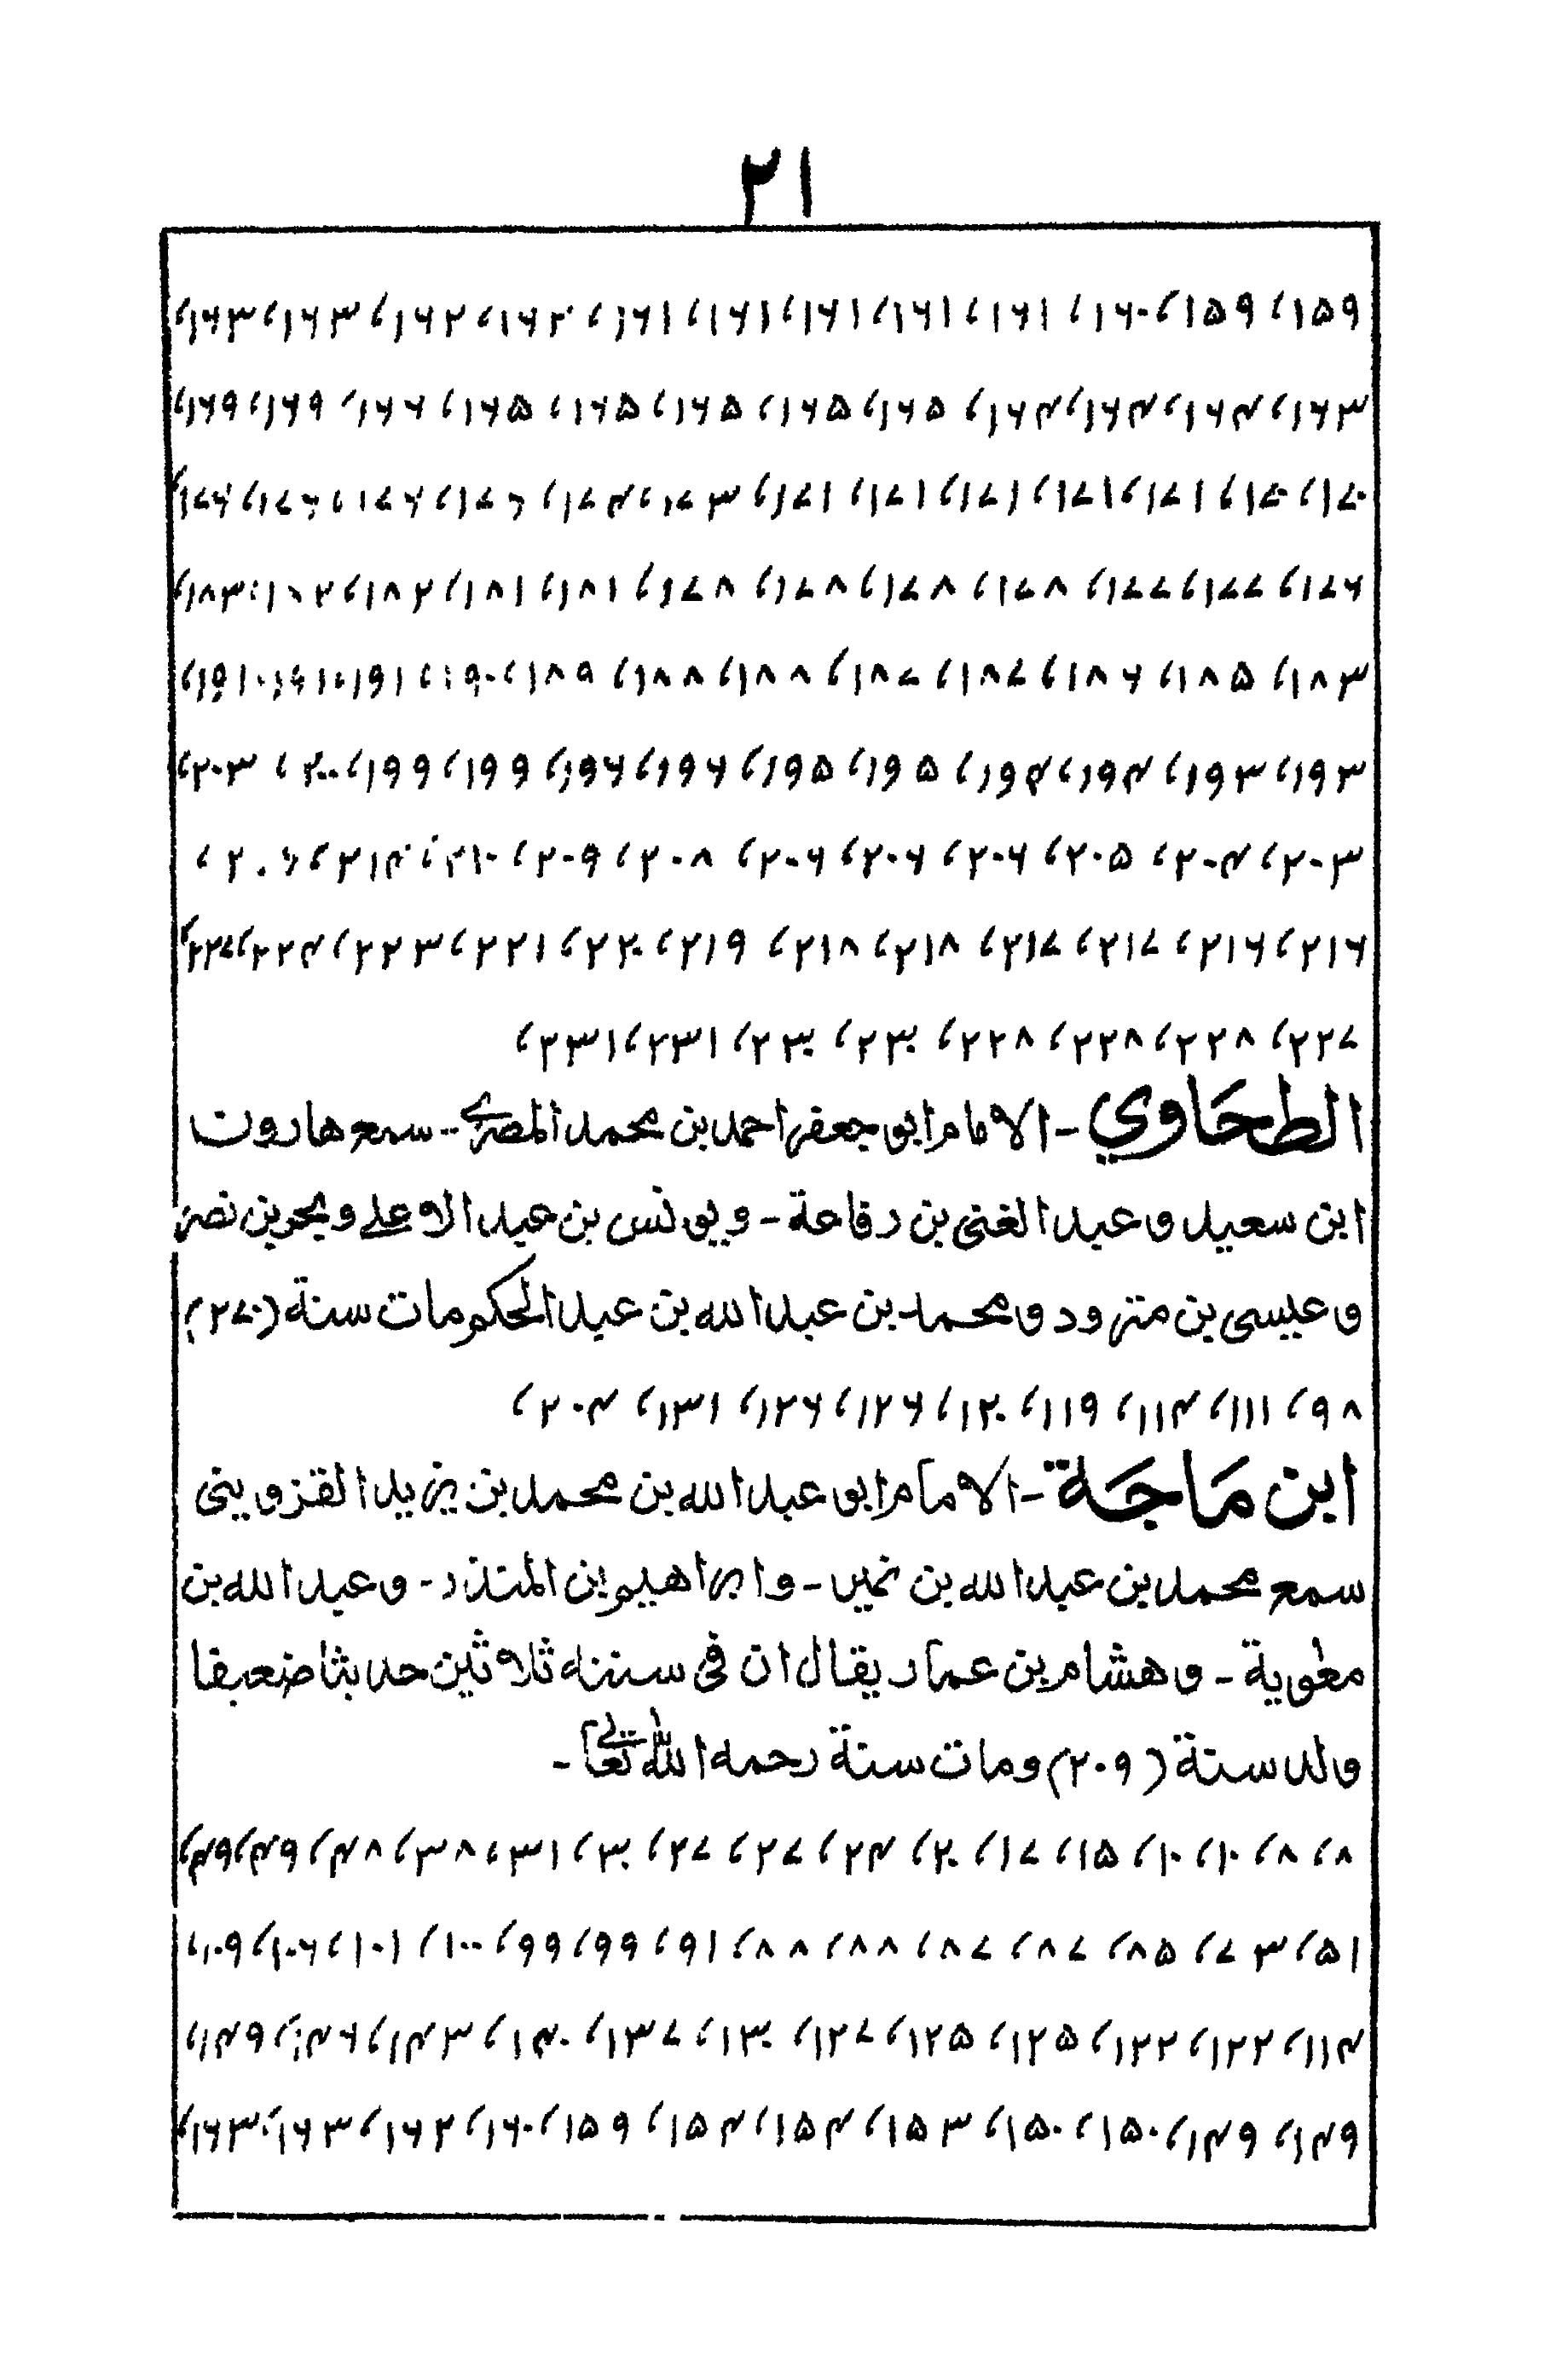 ۲۱
۱۵۹، ۱۵۹، ۱۶۰، ۱۶۱، ۱۶۱، ۱۶۱، ۱۶۱، ۱۶۱، ۱۶۲، ۱۶۲، ۱۶۳، ۱۶۳،
۱۶۳، ۱۶۴، ۱۶۴، ۱۶۴، ۱۶۵، ۱۶۵، ۱۶۵، ۱۶۵، ۱۶۵، ۱۶۶، ۱۶۹، ۱۶۹،
۱۷۰، ۱۷۰، ۱۷۱، ۱۷۱، ۱۷۱، ۱۷۱، ۱۷۱، ۱۷۳، ۱۷۴، ۱۷۶، ۱۷۶، ۱۷۶، ۱۷۶،
۱۷۶، ۱۷۷، ۱۷۷، ۱۷۸، ۱۷۸، ۱۷۸، ۱۷۸، ۱۸۱، ۱۸۱، ۱۸۲، ۱۸۲، ۱۸۳،
۱۸۳، ۱۸۵، ۱۸۶، ۱۸۷، ۱۸۷، ۱۸۸، ۱۸۸، ۱۸۹، ۱۹۰، ۱۹۱، ۱۹۱،
۱۹۳، ۱۹۳، ۱۹۴، ۱۹۴، ۱۹۵، ۱۹۵، ۱۹۶، ۱۹۶، ۱۹۹، ۱۹۹، ۲۰۰، ۲۰۳،
۲۰۳، ۲۰۴، ۲۰۵، ۲۰۶، ۲۰۶، ۲۰۶، ۲۰۸، ۲۰۹، ۲۱۰، ۲۱۴، ۲۰۶،
۲۱۶، ۲۱۶، ۲۱۷، ۲۱۷، ۲۱۸، ۲۱۸، ۲۱۹، ۲۲۰، ۲۲۱، ۲۲۳، ۲۲۴، ۲۲۷،
۲۲۷، ۲۲۸، ۲۲۸، ۲۲۸، ۲۳۰، ۲۳۰، ۲۳۱، ۲۳۱،
الطحَاوي - الامام ابو جعفر احمد بن محمد المصرے - سمع هارون
ابن سعيد و عبد الغنى بن رفاعة - ويونس بن عبد الاعلے و بحر بن نصر
و عيسى بن مثرود و محمد بن عبد الله بن عبد الحكم ومات سنة (۲۷۰)
۹۸، ۱۱۱، ۱۱۴، ۱۱۹، ۱۲۰، ۱۲۶، ۱۲۶، ۱۳۱، ۲۰۴،
ابن مَاجَة - الامام ابو عبد الله بن محمد بن يزيد القزوينى
سمع محمد بن عبد الله بن نمير - وابراهيم بن المنذر - و عبد الله بن
معٰوية - و هشام بن عمار يقال ان فى سننه ثلاثين حديثا ضعيفا
ولد سنة (۲۰۹) ومات سنة رحمه الله تعالےٰ -
۸، ۸، ۱۰، ۱۰، ۱۵، ۱۷، ۲۰، ۲۴، ۲۷، ۲۷، ۳۰، ۳۱، ۳۸، ۴۸، ۴۹، ۴۹،
۵۱، ۷۳، ۸۵، ۸۷، ۸۷، ۸۸، ۸۸، ۹۱، ۹۹، ۹۹، ۱۰۰، ۱۰۱، ۱۰۶، ۱۰۹،
۱۱۴، ۱۲۲، ۱۲۲، ۱۲۵، ۱۲۵، ۱۲۷، ۱۳۰، ۱۳۷، ۱۴۰، ۱۴۳، ۱۴۶، ۱۴۹،
۱۴۹، ۱۴۹، ۱۵۰، ۱۵۰، ۱۵۳، ۱۵۴، ۱۵۴، ۱۵۹، ۱۶۰، ۱۶۲، ۱۶۳، ۱۶۳،